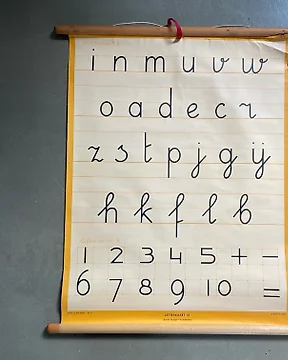 i n m u v w
o a d e c r
z s t p j g ij
h k f l b
1 2 3 4 5 + -
6 7 8 9 10 =